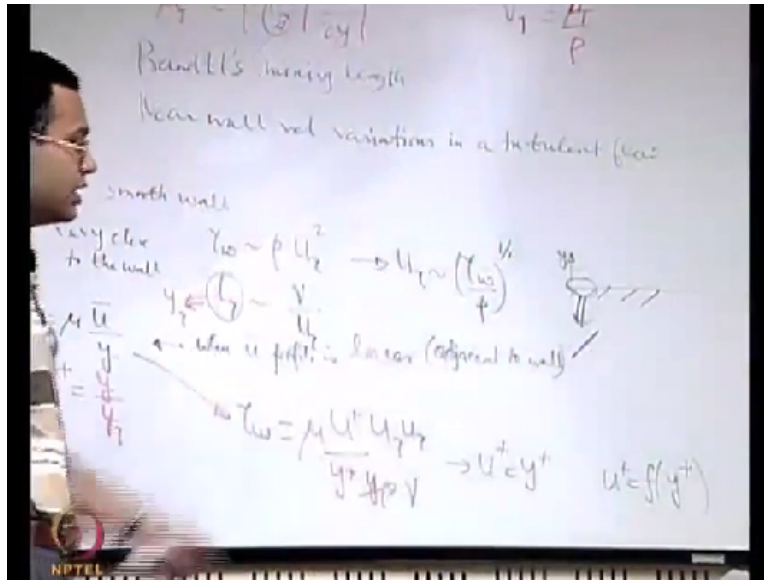 ν_T = μ_T / ρ
Prandtl's mixing length
Near wall vel variations in a turbulent flow
smooth wall
very close
to the wall
τ_w ~ ρ u_τ² → u_τ ~ (τ_w / ρ)^1/2
y_τ ← ~ ν / u_τ
μ ū / y
when u profile is linear (adjacent to wall)
+ = y / y_τ
τ_w = μ u⁺ u_τ u_τ / y⁺ ν → u⁺ = y⁺ u⁺ = f(y⁺)
NPTEL